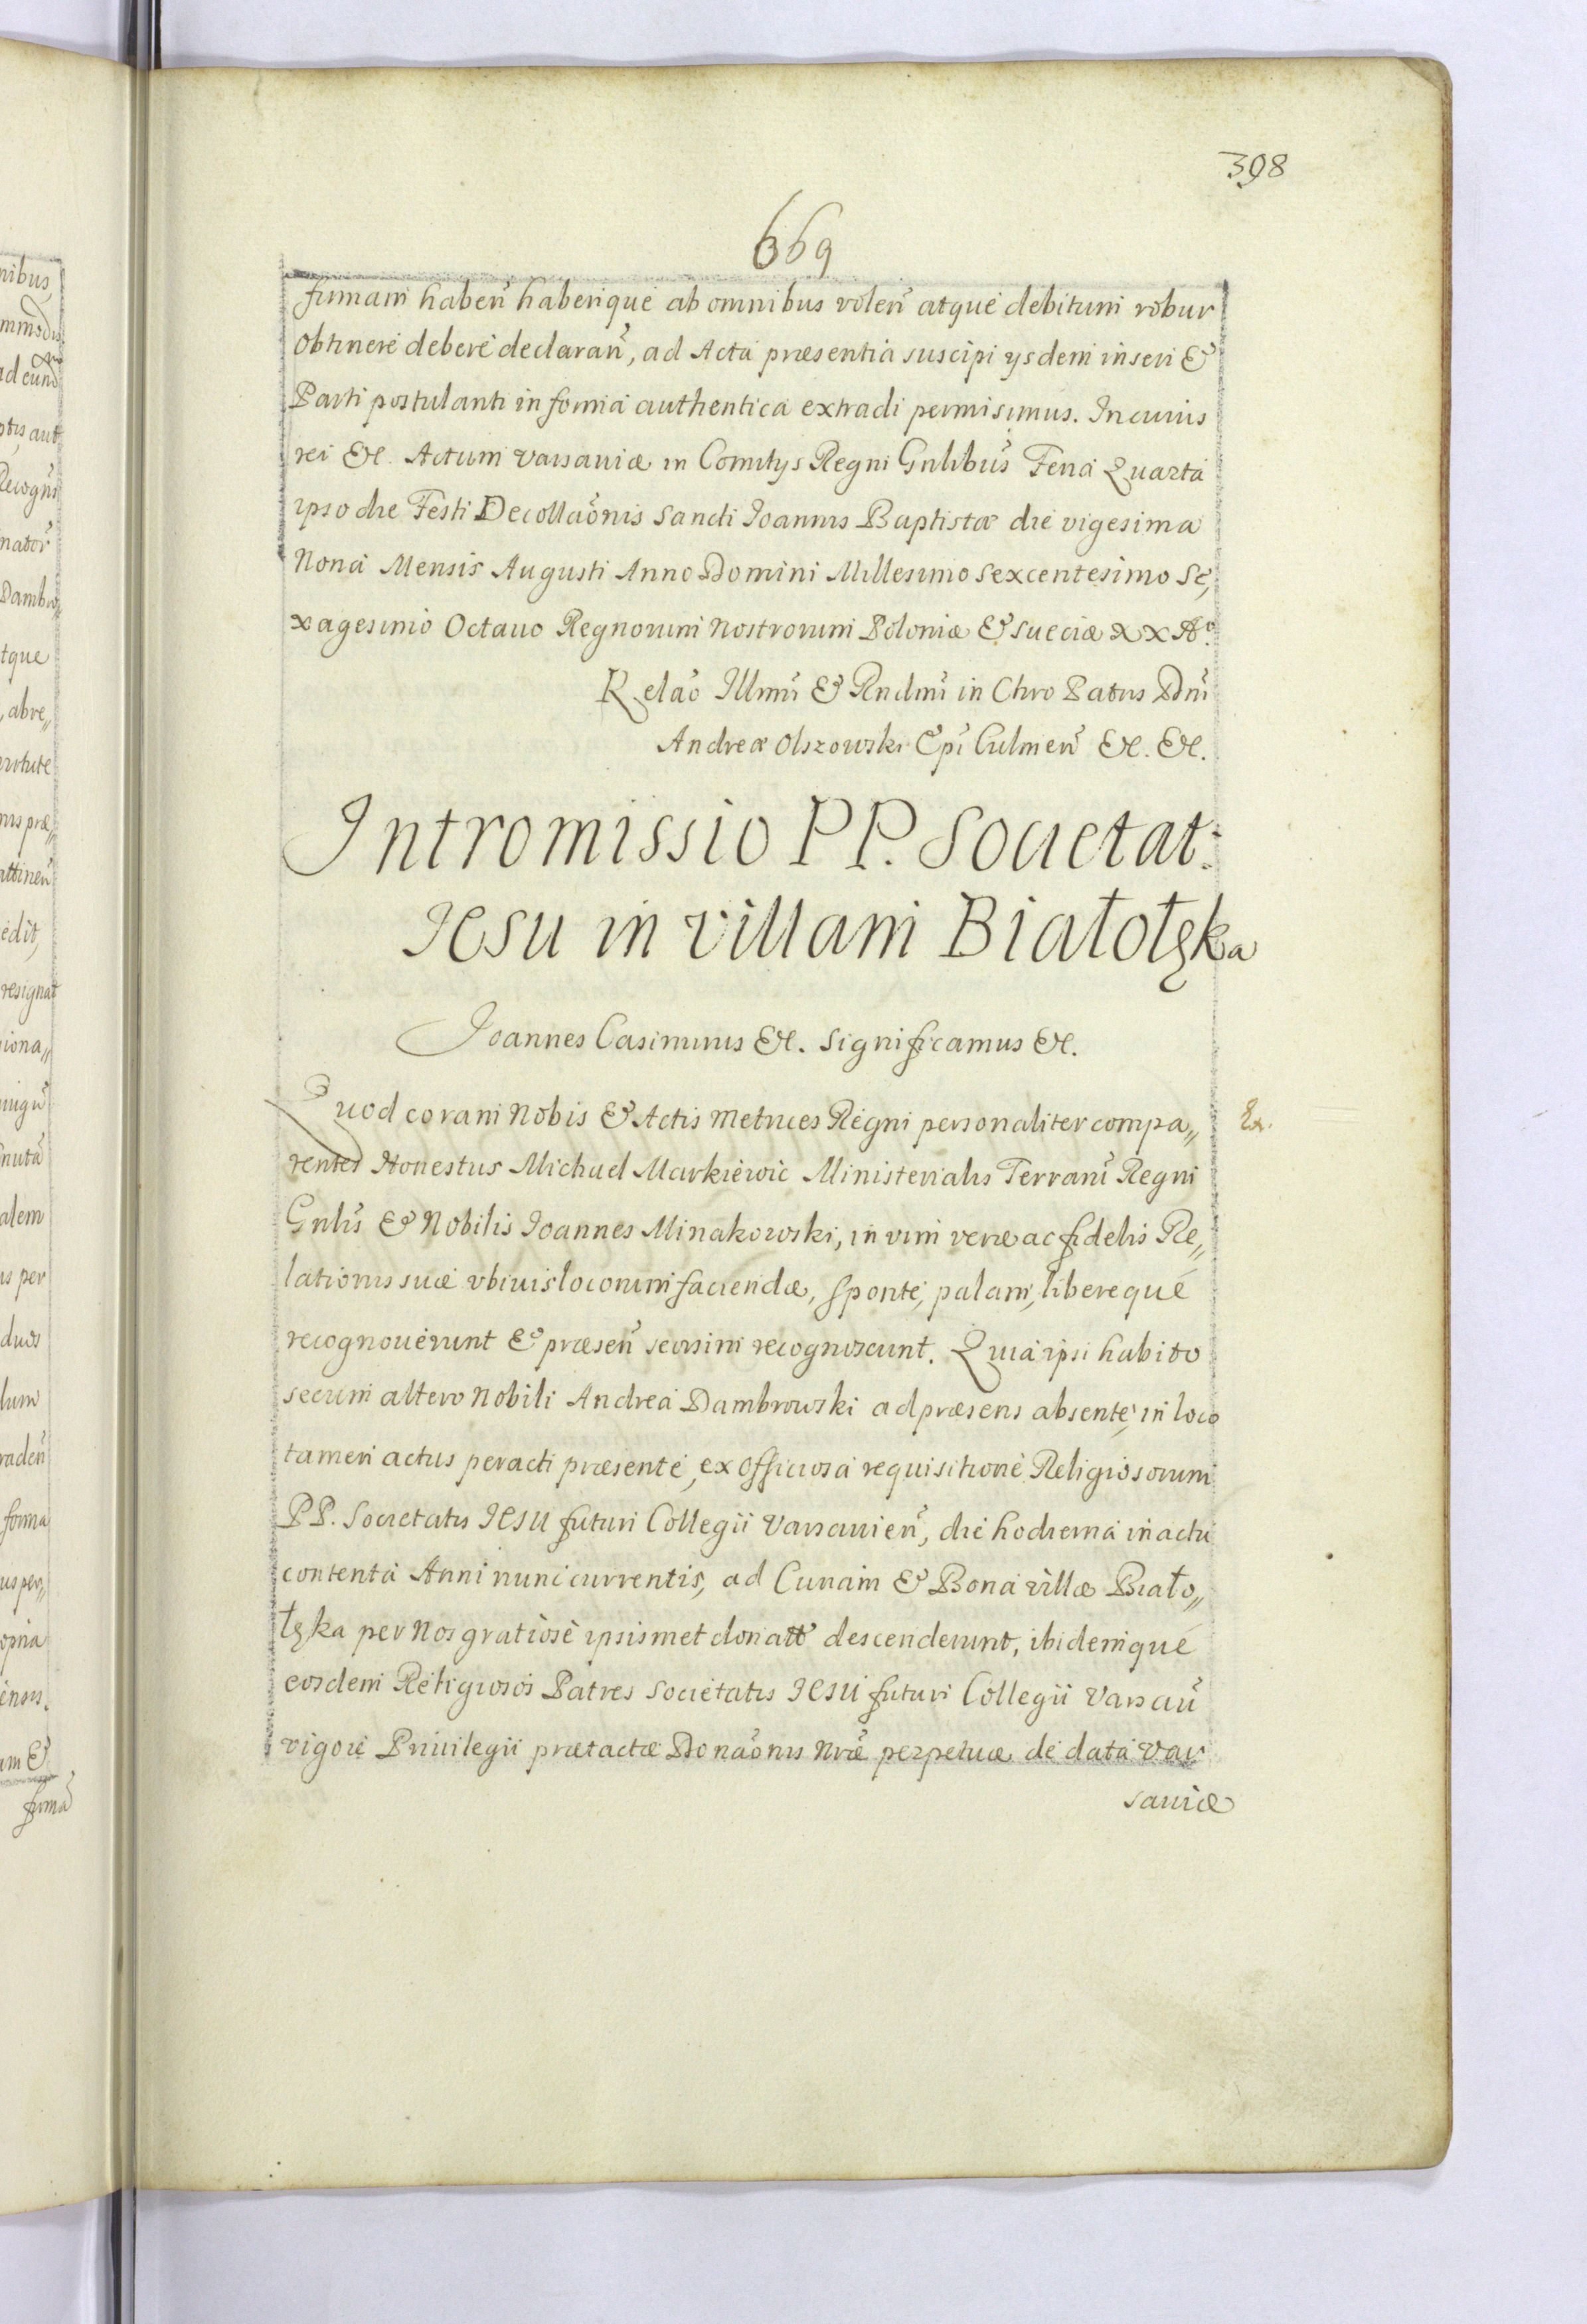 398
669
firmam haben̄ haberique ab omnibus volen̄ atque debitum robur
obtinere debere declaran̄, ad Acta præsentia suscipi ysdem inseri &
Parti postulanti in forma authentica extradi permisimus. In cuius
rei &c. Actum Varsaviæ in Comitys Regni Gnlibus̄ Feria Quarta
ipso die Festi Decollaōnis Sancti Joannis Baptistæ die vigesima
Nona Mensis Augusti Anno Domini Millesimo Sexcentesimo Se,
xagesimo Octauo Regnorum Nostrorum Poloniæ & Sueciæ XX Aº.
Relaō Illmī & Rndmī in Chro Patris Dnī
Andreæ Olszowski Epī Culmen̄ &c. &c.
Intromissio PP. Societat:
IESU in villam Białotęka
Joannes Casimirus &c. Significamus &c.
Quod coram Nobis & Actis Metrices Regni personaliter compa„
rentes Honestus Michael Markiewic Ministerialis Terrarū Regni
Gnlis̄ & Nobilis Joannes Minakowski, in vim veræ ac fidelis Re„
lationis suæ vbiuis locorum faciendæ, sponte, palam, libereque
recognouerunt & præsen̄ seorsim recognoscunt. Quia ipsi habito
secum altero Nobili Andrea Dambrowski ad præsens absente, in loco
tamen actus peracti præsente, ex officiosa requisitione Religiosorum
PP. Societatis IESU futuri Collegii Varsavien̄, die hodierna in actu
contenta Anni nunc currentis, ad Curiam & Bona villæ Biało„
tęka per Nos gratiose ipsismet donatt descenderunt, ibidemque
eosdem Religiosos Patres Societatis IESU futuri Collegii Varsav̄
vigore Priuilegii prætactæ Donaōnis Nrǣ perpetuæ de data Var
sauiæ